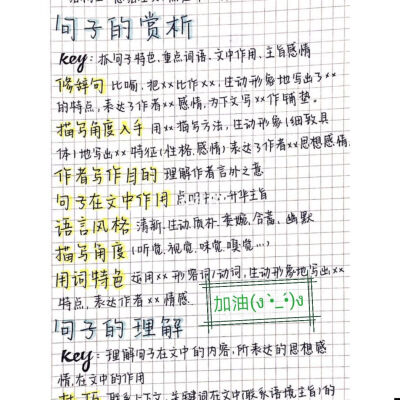 句子的赏析
key：抓句子特色、重点词语、文中作用、主旨感情
修辞句 比喻，把××比作××，生动形象地写出了××
的特点，表达了作者××感情，为下文写××作铺垫。
描写角度入手 用××描写方法，生动形象(细致具
体)地写出××特征(性格.感情)表达了作者××思想感情.
作者写作目的 理解作者言外之意
句子在文中作用 点明中心,升华主旨
语言风格 清新.生动.质朴.委婉.含蓄、幽默
描写角度(听觉.视觉.味觉.嗅觉...)
用词特色 运用××形容词/动词,生动形象地写出××
特点,表达作者××情感.
加油(ง •̀_•́)ง
句子的理解
key：理解句子在文中的内容,所表达的思想感
情,在文中的作用
联系上下文,关键词在文中(联系语境主旨)的